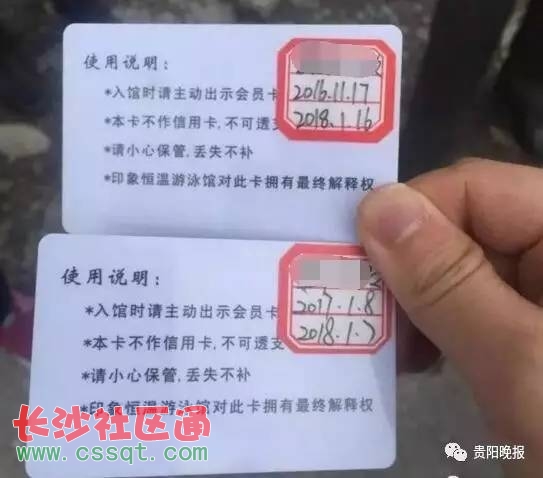 使用说明：
*入馆时请主动出示会员卡
*本卡不作信用卡，不可透支
*请小心保管，丢失不补
*印象恒温游泳馆对此卡拥有最终解释权
2016.11.17
2018.1.16
使用说明：
*入馆时请主动出示会员卡
*本卡不作信用卡，不可透支
*请小心保管，丢失不补
*印象恒温游泳馆对此卡拥有最终解释权
2017.1.8
2018.1.7
长沙社区通
www.cssqt.com
贵阳晚报